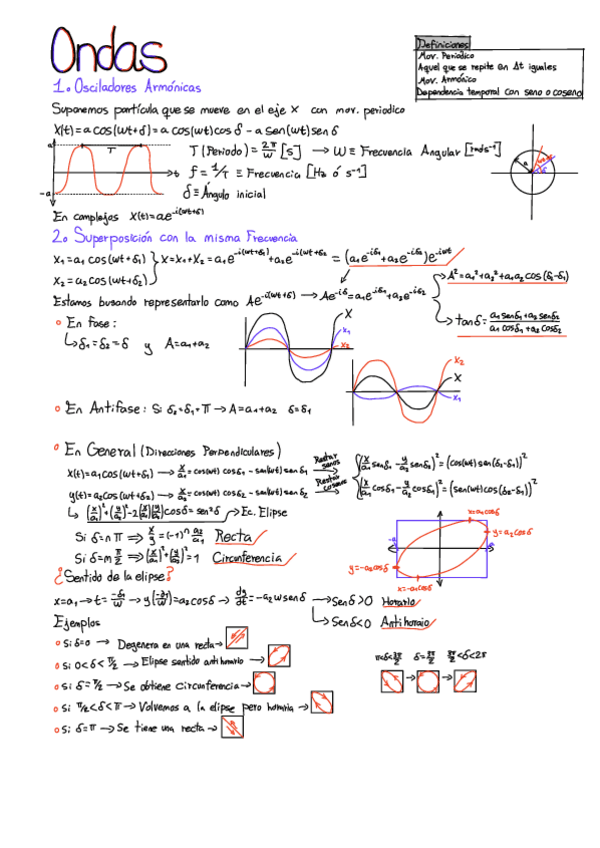 Ondas
Definiciones
Mov. Periodico
Aquel que se repite en Δt iguales
Mov. Armónico
Dependencia temporal con seno o coseno
1. Osciladores Armónicas
Suponemos partícula que se mueve en el eje X con mov. periodico
X(t) = a cos(wt+δ) = a cos(wt) cos δ - a sen(wt) sen δ
a
T
t
-a
T (Periodo) = 2π/w [s] → w ≡ Frecuencia Angular [rads⁻¹]
f = 1/T ≡ Frecuencia [Hz ó s⁻¹]
δ ≡ Ángulo inicial
En complejos X(t) = ae^-i(wt+δ)
2. Superposición con la misma Frecuencia
x₁ = a₁ cos(wt+δ₁)
x₂ = a₂ cos(wt+δ₂)
X = X₁+X₂ = a₁e^-i(wt+δ₁) + a₂e^-i(wt+δ₂) = (a₁e^-iδ₁ + a₂e^-iδ₂)e^-iwt
Estamos busando representarlo como Ae^-i(wt+δ) → Ae^-iδ = a₁e^-iδ₁ + a₂e^-iδ₂
A² = a₁² + a₂² + a₁a₂ cos(δ₂-δ₁)
tanδ = (a₁ senδ₁ + a₂ senδ₂)/(a₁ cosδ₁ + a₂ cosδ₂)
En fase:
δ₁ = δ₂ = δ y A = a₁+a₂
X
x₁
x₂
x₂
X
x₁
En Antifase: Si δ₂ = δ₁ + π → A = a₁+a₂ δ = δ₁
En General (Direcciones Perpendiculares)
x(t) = a₁ cos(wt+δ₁) → x/a₁ = cos(wt) cosδ₁ - sen(wt) senδ₁
y(t) = a₂ cos(wt+δ₂) → y/a₂ = cos(wt) cosδ₂ - sen(wt) senδ₂
Restar senos
Restar cosenos
(x/a₁ senδ₂ - y/a₂ senδ₁)² = (cos(wt) sen(δ₂-δ₁))²
(x/a₁ cosδ₂ - y/a₂ cosδ₁)² = (sen(wt) cos(δ₂-δ₁))²
(x/a₁)² + (y/a₂)² - 2(x/a₁)(y/a₂) cosδ = sen²δ → Ec. Elipse
Si δ = nπ ⇒ x/y = (-1)ⁿ a₂/a₁ Recta
Si δ = m π/2 ⇒ (x/a₁)² + (y/a₂)² = 1 Circunferencia
x=a₁cosδ
y=a₂cosδ
y=-a₂cosδ
x=-a₁cosδ
¿Sentido de la elipse?
x = a₁ → t = -δ₁/w → y(-δ₁/w) = a₂cosδ → dy/dt = -a₂ w senδ
Senδ>0 Horario
Senδ<0 Antihoraio
Ejemplos
Si δ=0 → Degenera en una recta →
Si 0<δ<π/2 → Elipse sentido antihorario →
Si δ = π/2 → Se obtiene Circunferencia →
Si π/2<δ<π → Volvemos a la elipse pero horaria →
Si δ=π → Se tiene una recta →
π<δ<3π/2 δ=3π/2 3π/2<δ<2π